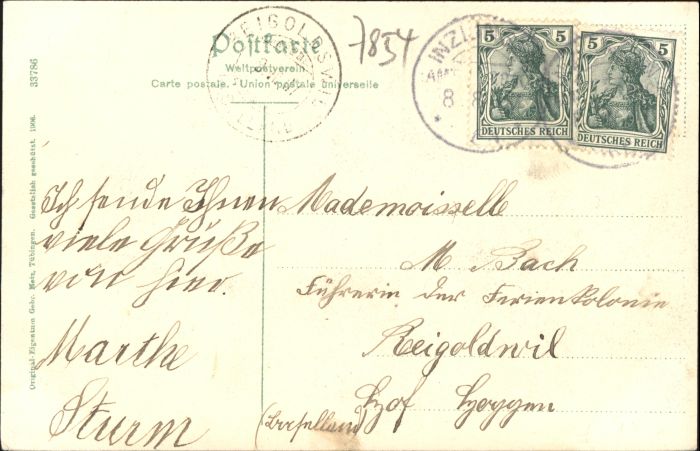 Postkarte
Weltpostverein
Carte postale. - Union postale universelle
7854
REIGOLDSWIL
INZL
8
5 5
DEUTSCHES REICH
5 5
DEUTSCHES REICH
33786
Original-Eigentum Gebr. Metz, Tübingen. Gesetzlich geschützt. 1906.
Ich sende Ihnen
viele Grüße
von hier.
Marthe
Sturm
Mademoiselle
M. Bach
Führerin der Ferienkolonie
Reigoldwil
Hof
(Baselland)